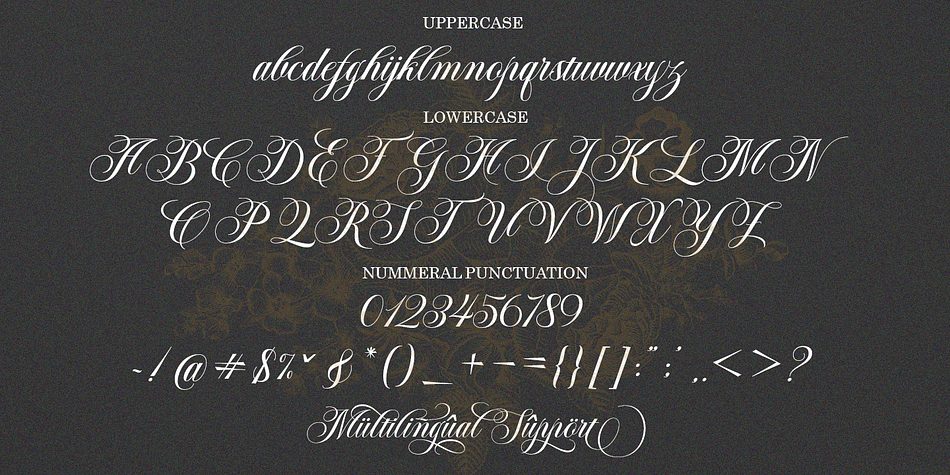 UPPERCASE
abcdefghijklmnopqrstuvwxyz
LOWERCASE
ABCDEFGHIJKLMN
OPQRSTUVWXYZ
NUMMERAL PUNCTUATION
0123456789
~!@#$%ˇ&*()_+-={}[]:";',.<>?
Mültilingûal Sûppört